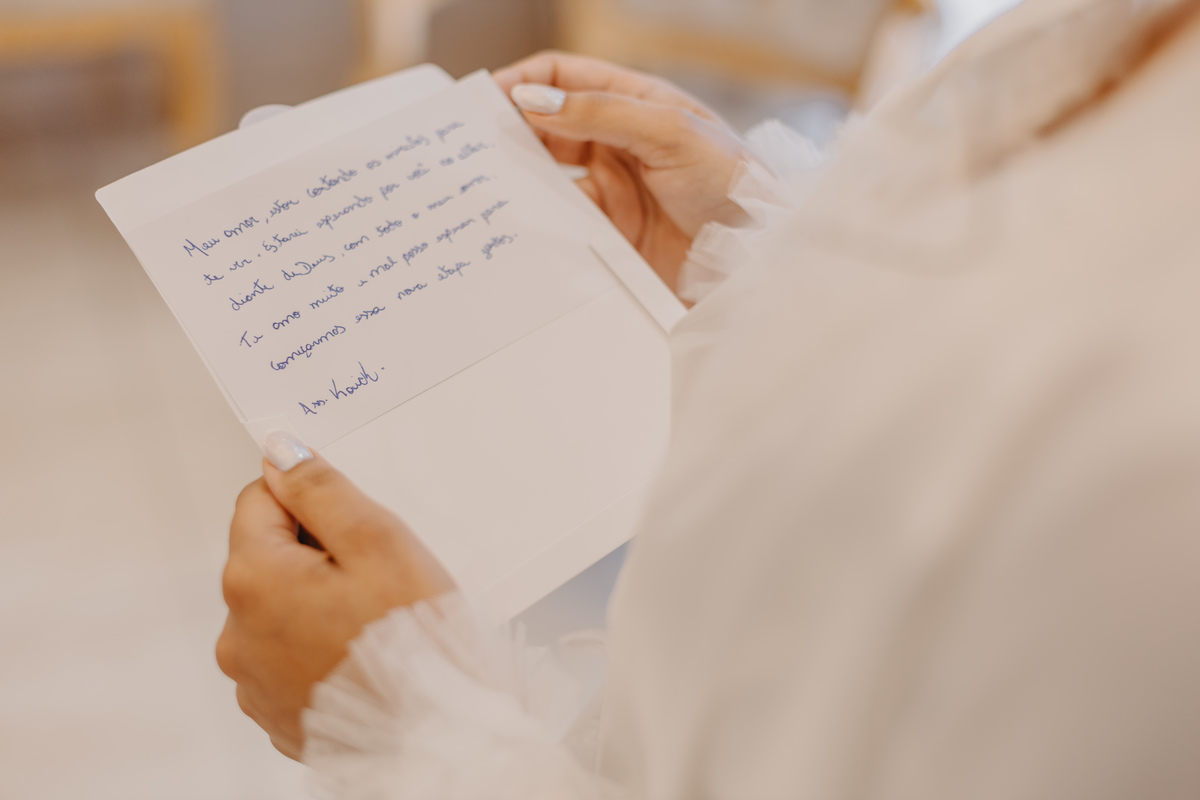 Meu amor, estou contando os minutos para
te ver. Estarei esperando por você no altar,
diante de Deus, com todo o meu amor.
Te amo muito e mal posso esperar para
começarmos essa nova etapa juntos.
Ass. Kaick.